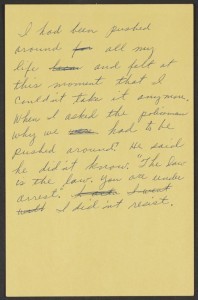 I had been pushed
around all my
life and felt at
this moment that I
couldn't take it anymore.
When I asked the policeman
why we had to be
pushed around? He said
he didn't know. "The law
is the law. You are under
arrest."
I did'nt resist.